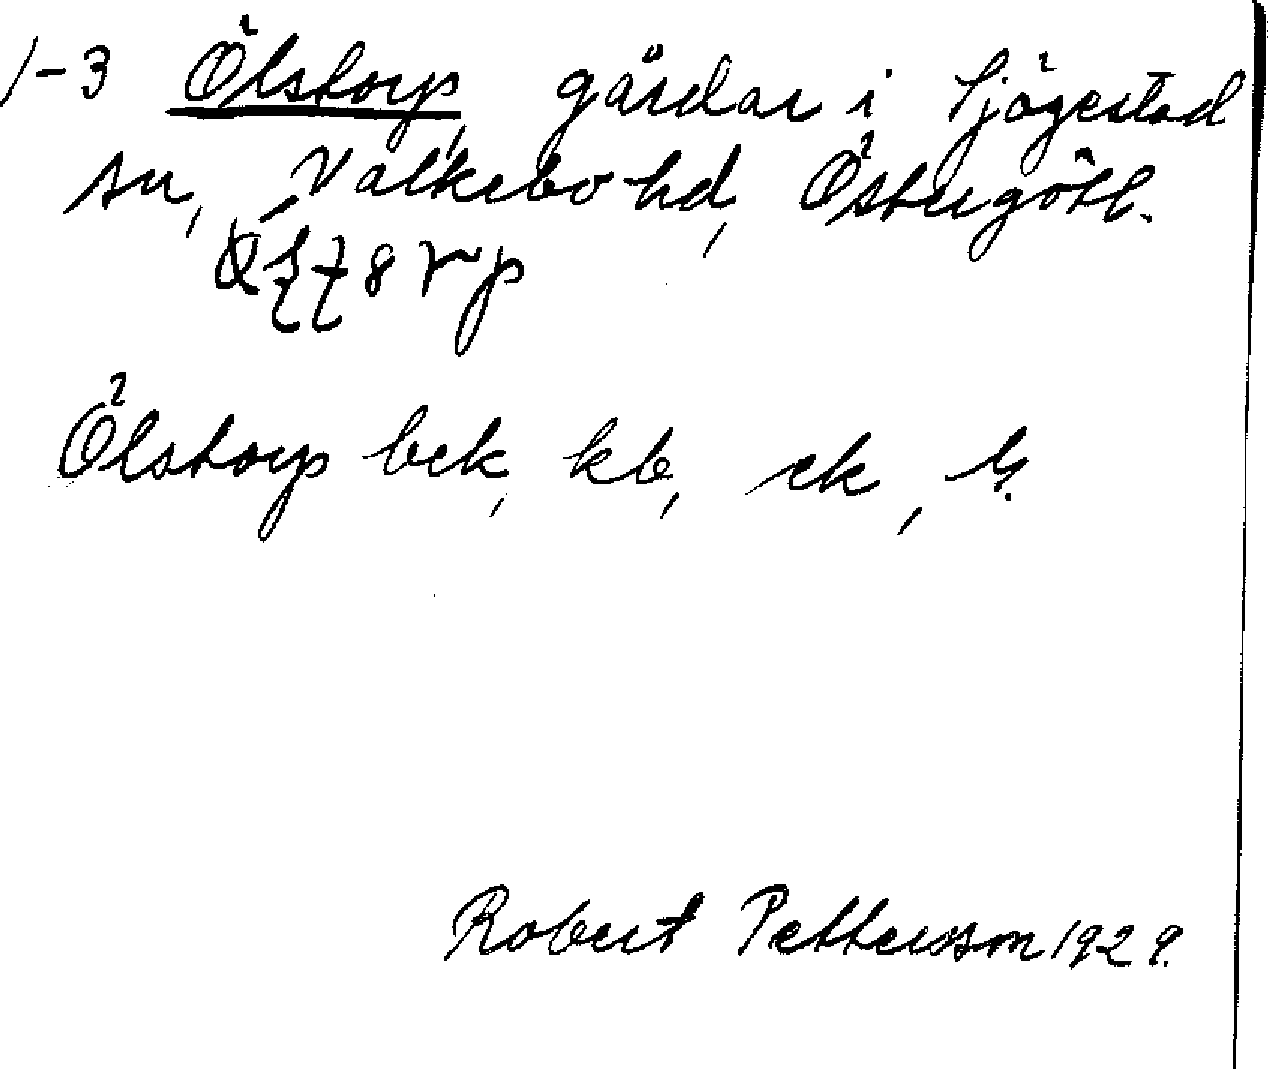 1-3 Ölstorp, gårdar i Sjögestad
sn, Valkebo hd, Östergötl.
Ölstorp bek, kb, ek, 
Robert Pettersson 1929.